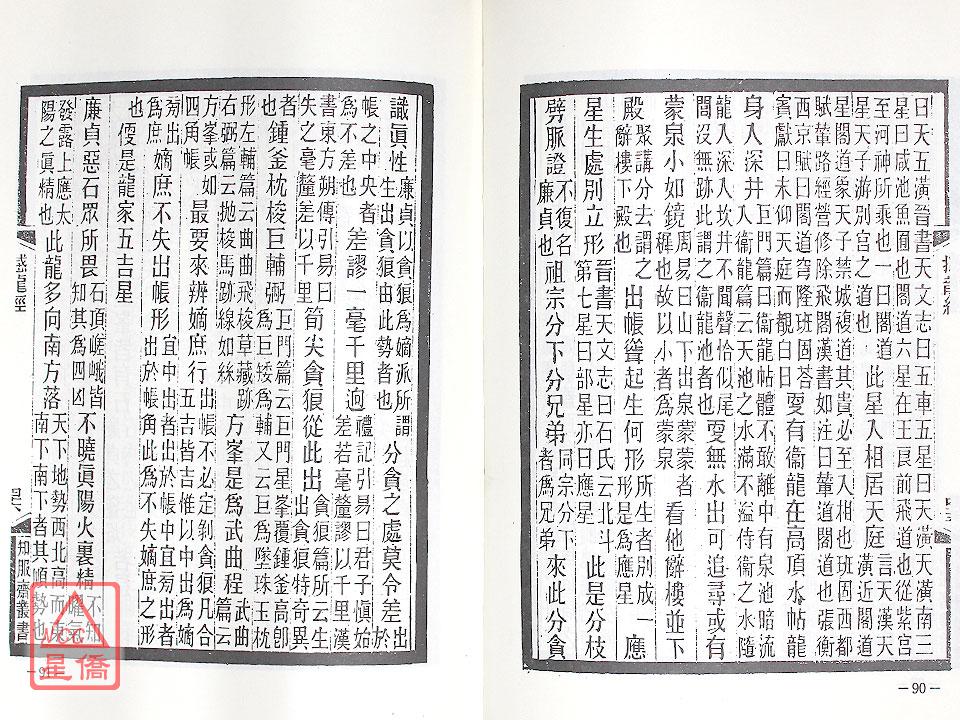 日天五潢晉書天文志曰五車五星曰天潢天潢南三
星曰咸池魚囿也閣道六星在王良前飛道也從紫宮
至河神所乘也一曰閣道
星天子游別宮之道也
此星入相居天庭
言天漢天
潢近閣道
星閣道象天子禁城複道其貴必至入相也班固西都
賦輦路經營修除飛閣漢書如注曰輦道閣道也張衡
西京賦曰閣道穹隆班固答
賓獻曰未仰天庭而覩白日
更有衞龍在高頂水帖龍
身入深井
巨門篇曰衞龍帖體不敢離中有泉池暗流
入衞龍篇云天池之水滿不溢侍衞之水隨
龍入深入坎井不聞聲恰似尾
閭沒無跡此謂之衞龍池者也
更無水出可追尋或有
蒙泉小如鏡
周易曰山下出泉蒙蒙者
穉也故以小者為蒙泉
看他廨樓並下
殿
聚講分去謂之
廨樓下殿也
出帳聳起生何形
形是為應星
所生者別成一應
星生處別立形
晉書天文志曰石氏云北斗
第七星曰部星亦曰應星
此是分枝
劈脈證
不復名
廉貞也
祖宗分下分兄弟
同宗分下
者為兄弟
來此分貪
識眞性
廉貞以貪狼為嫡派所謂
生出貪狼由此勢者也
分貪之處莫令差
出於
帳之中央者
為不差也
差謬一毫千里逈
禮記引易曰君子愼始
差若毫釐謬以千里漢
書東方朔傳引易曰
失之毫釐差以千里
筍尖貪狼從此出
貪狼篇所云生
出貪狼特奇異
者
也
鍾釜枕梭巨輔弼
巨門篇云巨門星峯覆鍾釜高卽
為巨矮為輔又云巨為墜珠玉枕
形左輔篇云曲曲飛梭草藏跡
右弼篇云抛梭馬跡線如絲
方峯是為武曲程
武曲
篇云
方峯或如
四角帳
最要來辨嫡庶行
出帳不必定剝貪狼凡合
五吉皆吉惟以中出為嫡
旁出
為庶
嫡庶不失出帳形
宜中出者出於帳中宜旁出者
出於帳角此為不失嫡庶之形
也
便是龍家五吉星
廉貞惡石眾所畏
石頂嵯峨皆
知其為四凶
不曉眞陽火裏精
發露上應太
陽之眞精也
此龍多向南方落
天下地勢西北高而東
南下南下者其順勢也
撼龍經
知服齋叢書
—90—
星僑